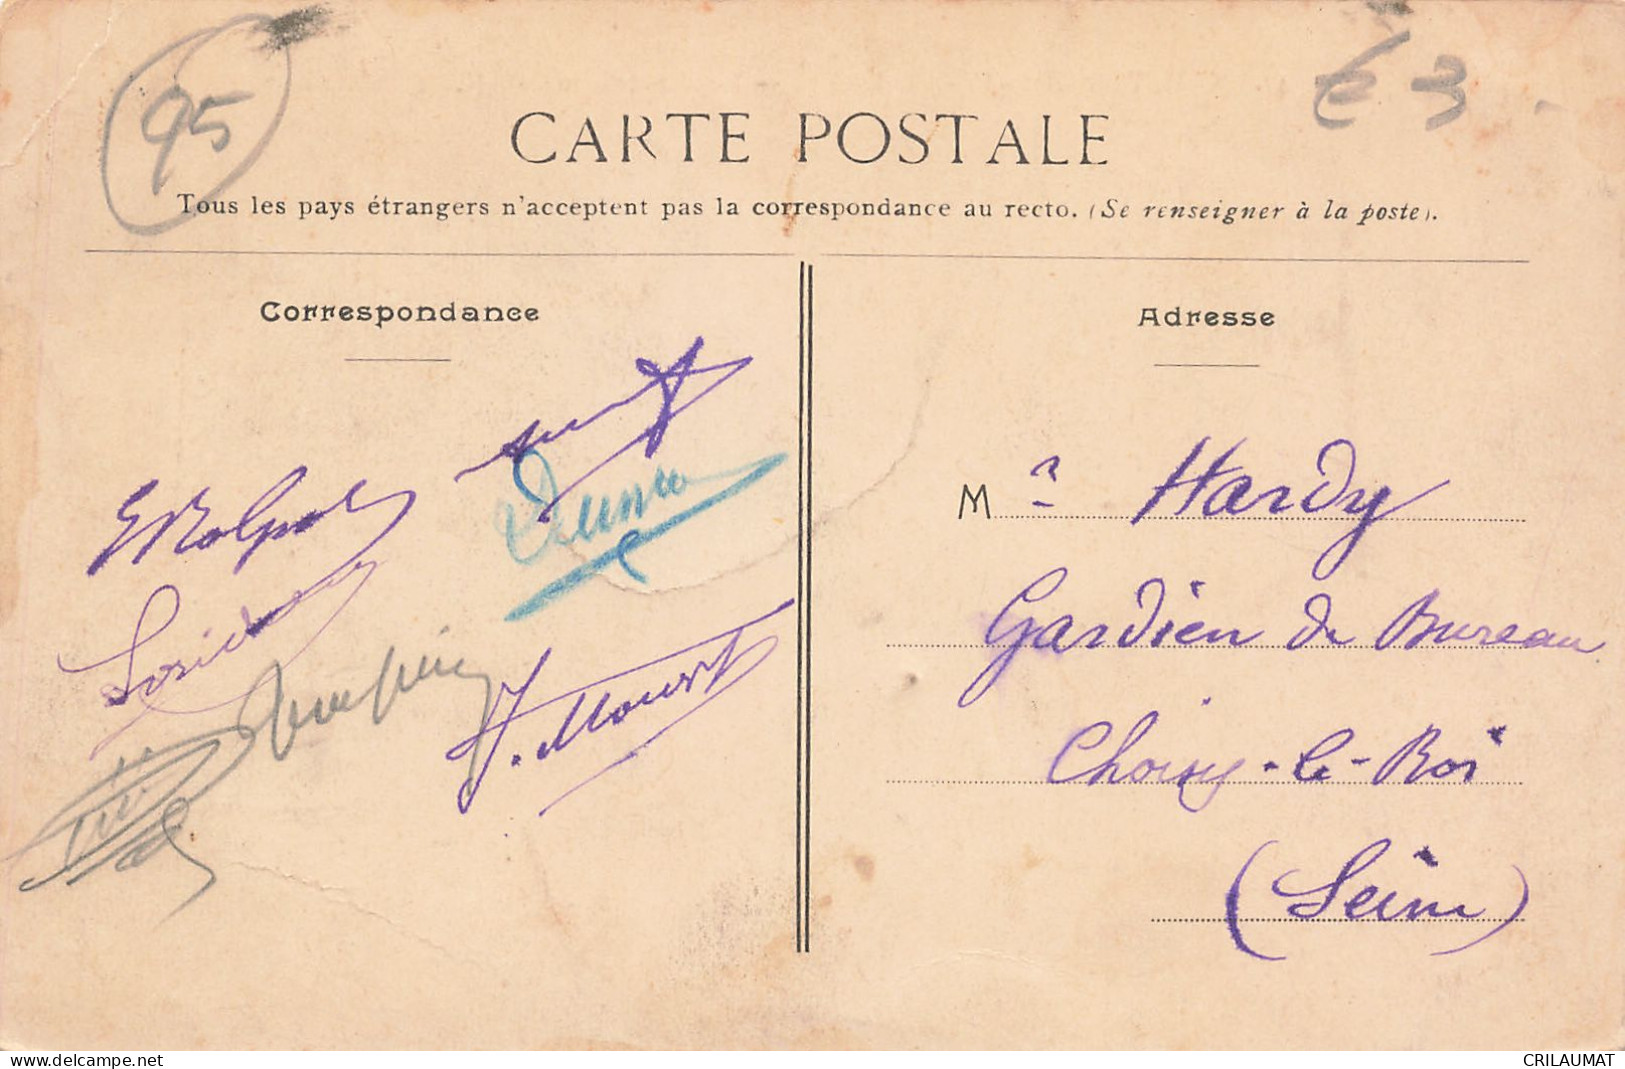 95
€ 3
CARTE POSTALE
Tous les pays étrangers n'acceptent pas la correspondance au recto. (Se renseigner à la poste).
Correspondance
J. Mourot
Adresse
Mr Hardy
Gardien de Bureau
Choisy-le-Roi
(Seine)
www.delcampe.net
CRILAUMAT